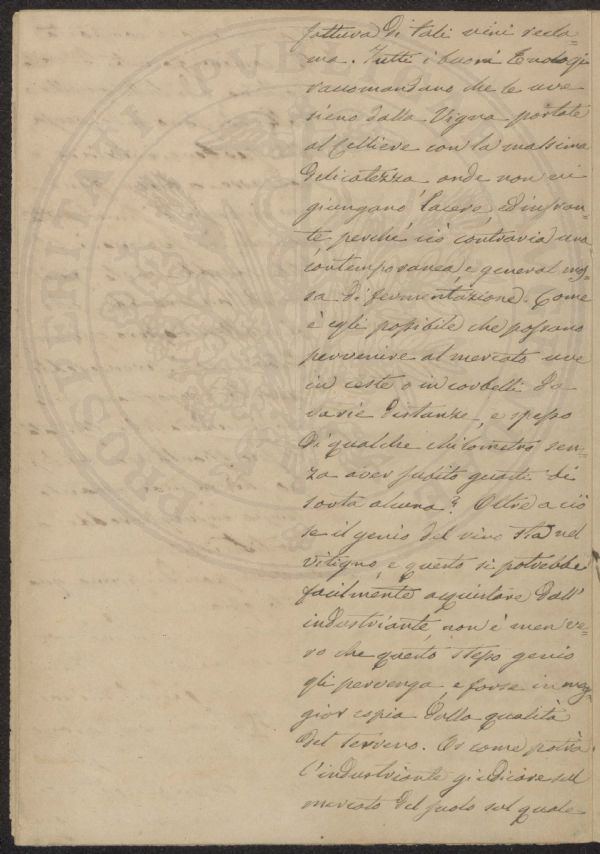 fattura di tali vini recla-
ma. Tutti i buoni Enologi
raccomandano che le uve
sieno dalla Vigna portate
al Celliere con la massima
delicatezza onde non vi
giungano lacere, ed infran-
te perchè ciò contraria una
contemporanea e general mos-
sa di fermentazione. Come
è egli possibile che possano
pervenire al mercato uve
in ceste o in corbelli da
varie distanze, e spesso
di qualche chilometro sen-
za aver subito guasti di
sorta alcuna? Oltre a ciò
se il genio del vino sta nel
vitigno, e questo si potrebbe
facilmente acquistare dall'
industriante, non è men ve-
ro che questo stesso genio
gli pervenga, e forse in mag-
gior copia dalla qualità
del terreno. Or come potrà
l'industriante giudicare sul
mercato del suolo sul quale
PROSPERITATI PUBLICAE